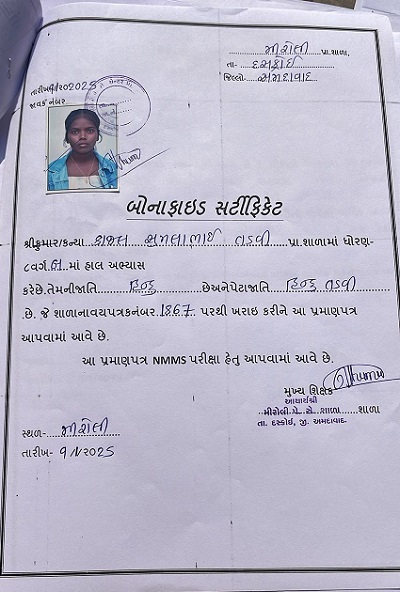 મીરોલી પ્રા.શાળા,
તા- દસક્રોઈ
જિલ્લો- અમદાવાદ
તારીખ
જાવક નંબર
બોનાફાઇડ સર્ટીફિકેટ
શ્રીકુમાર/કન્યા કાજલ તડવી પ્રા.શાળામાં ધોરણ-
૮વર્ગ માં હાલ અભ્યાસ
કરેછે.તેમનીજાતિ હિન્દુ છેઅનેપેટાજાતિ હિન્દુ તડવી
છે. જે શાળાનાવયપત્રકનંબર 1867 પરથી ખરાઇ કરીને આ પ્રમાણપત્ર
આપવામાં આવે છે.
આ પ્રમાણપત્ર NMMS પરીક્ષા હેતુ આપવામાં આવે છે.
મુખ્ય શિક્ષક
આચાર્યશ્રી
મીરોલી પે. સે. શાળા શાળા
તા. દસ્ક્રોઇ, જી. અમદાવાદ.
સ્થળ- મીરોલી
તારીખ-